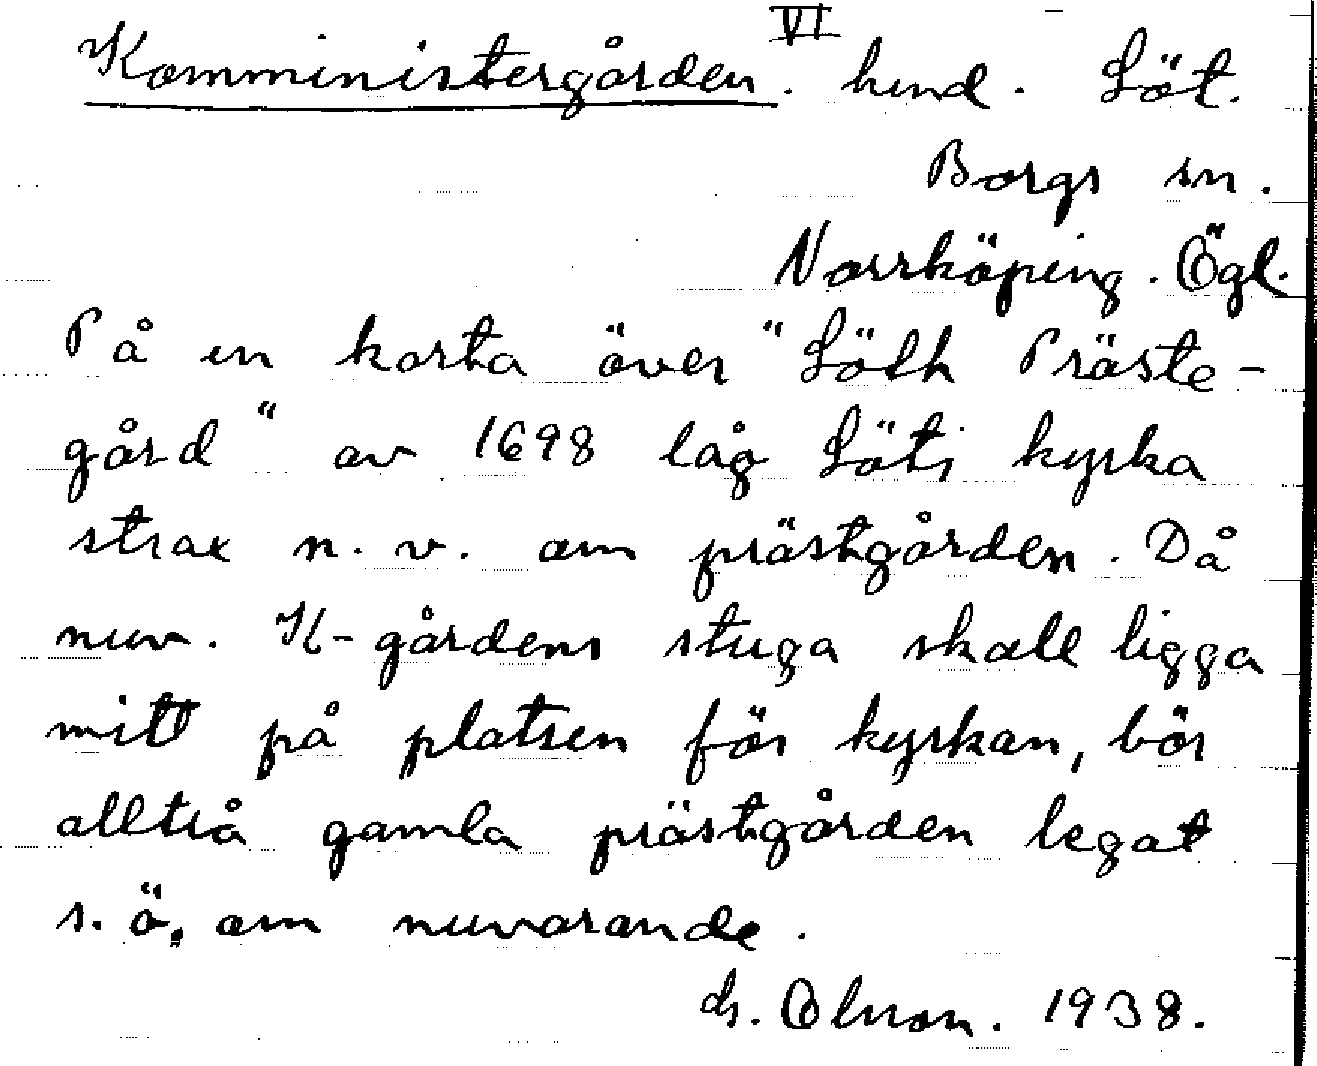 VI
Komministergården. hmd. Löt.
Borgs sn.
Norrköping. Ögl.
På en karta över "Löth Präste-
gård" av 1698 låg Löts kyrka
strax n. v. om prästgården. Då
nuv. K-gårdens stuga skall ligga
mitt på platsen för kyrkan, bör
alltså gamla prästgården legat
s. ö. om nuvarande.
Olsson. 1938.